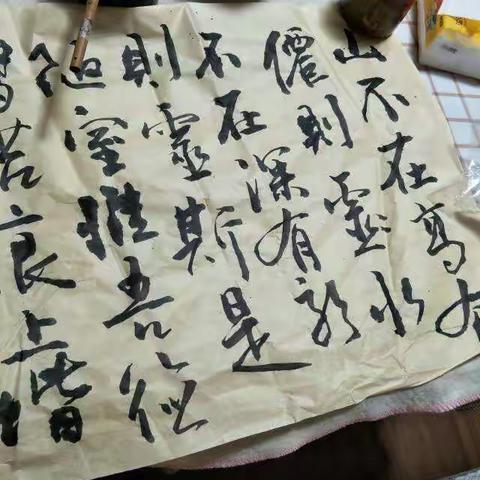 山不在高有
僊則靈水
不在深有龍
則靈斯是
陋室惟吾德
馨苔痕上階